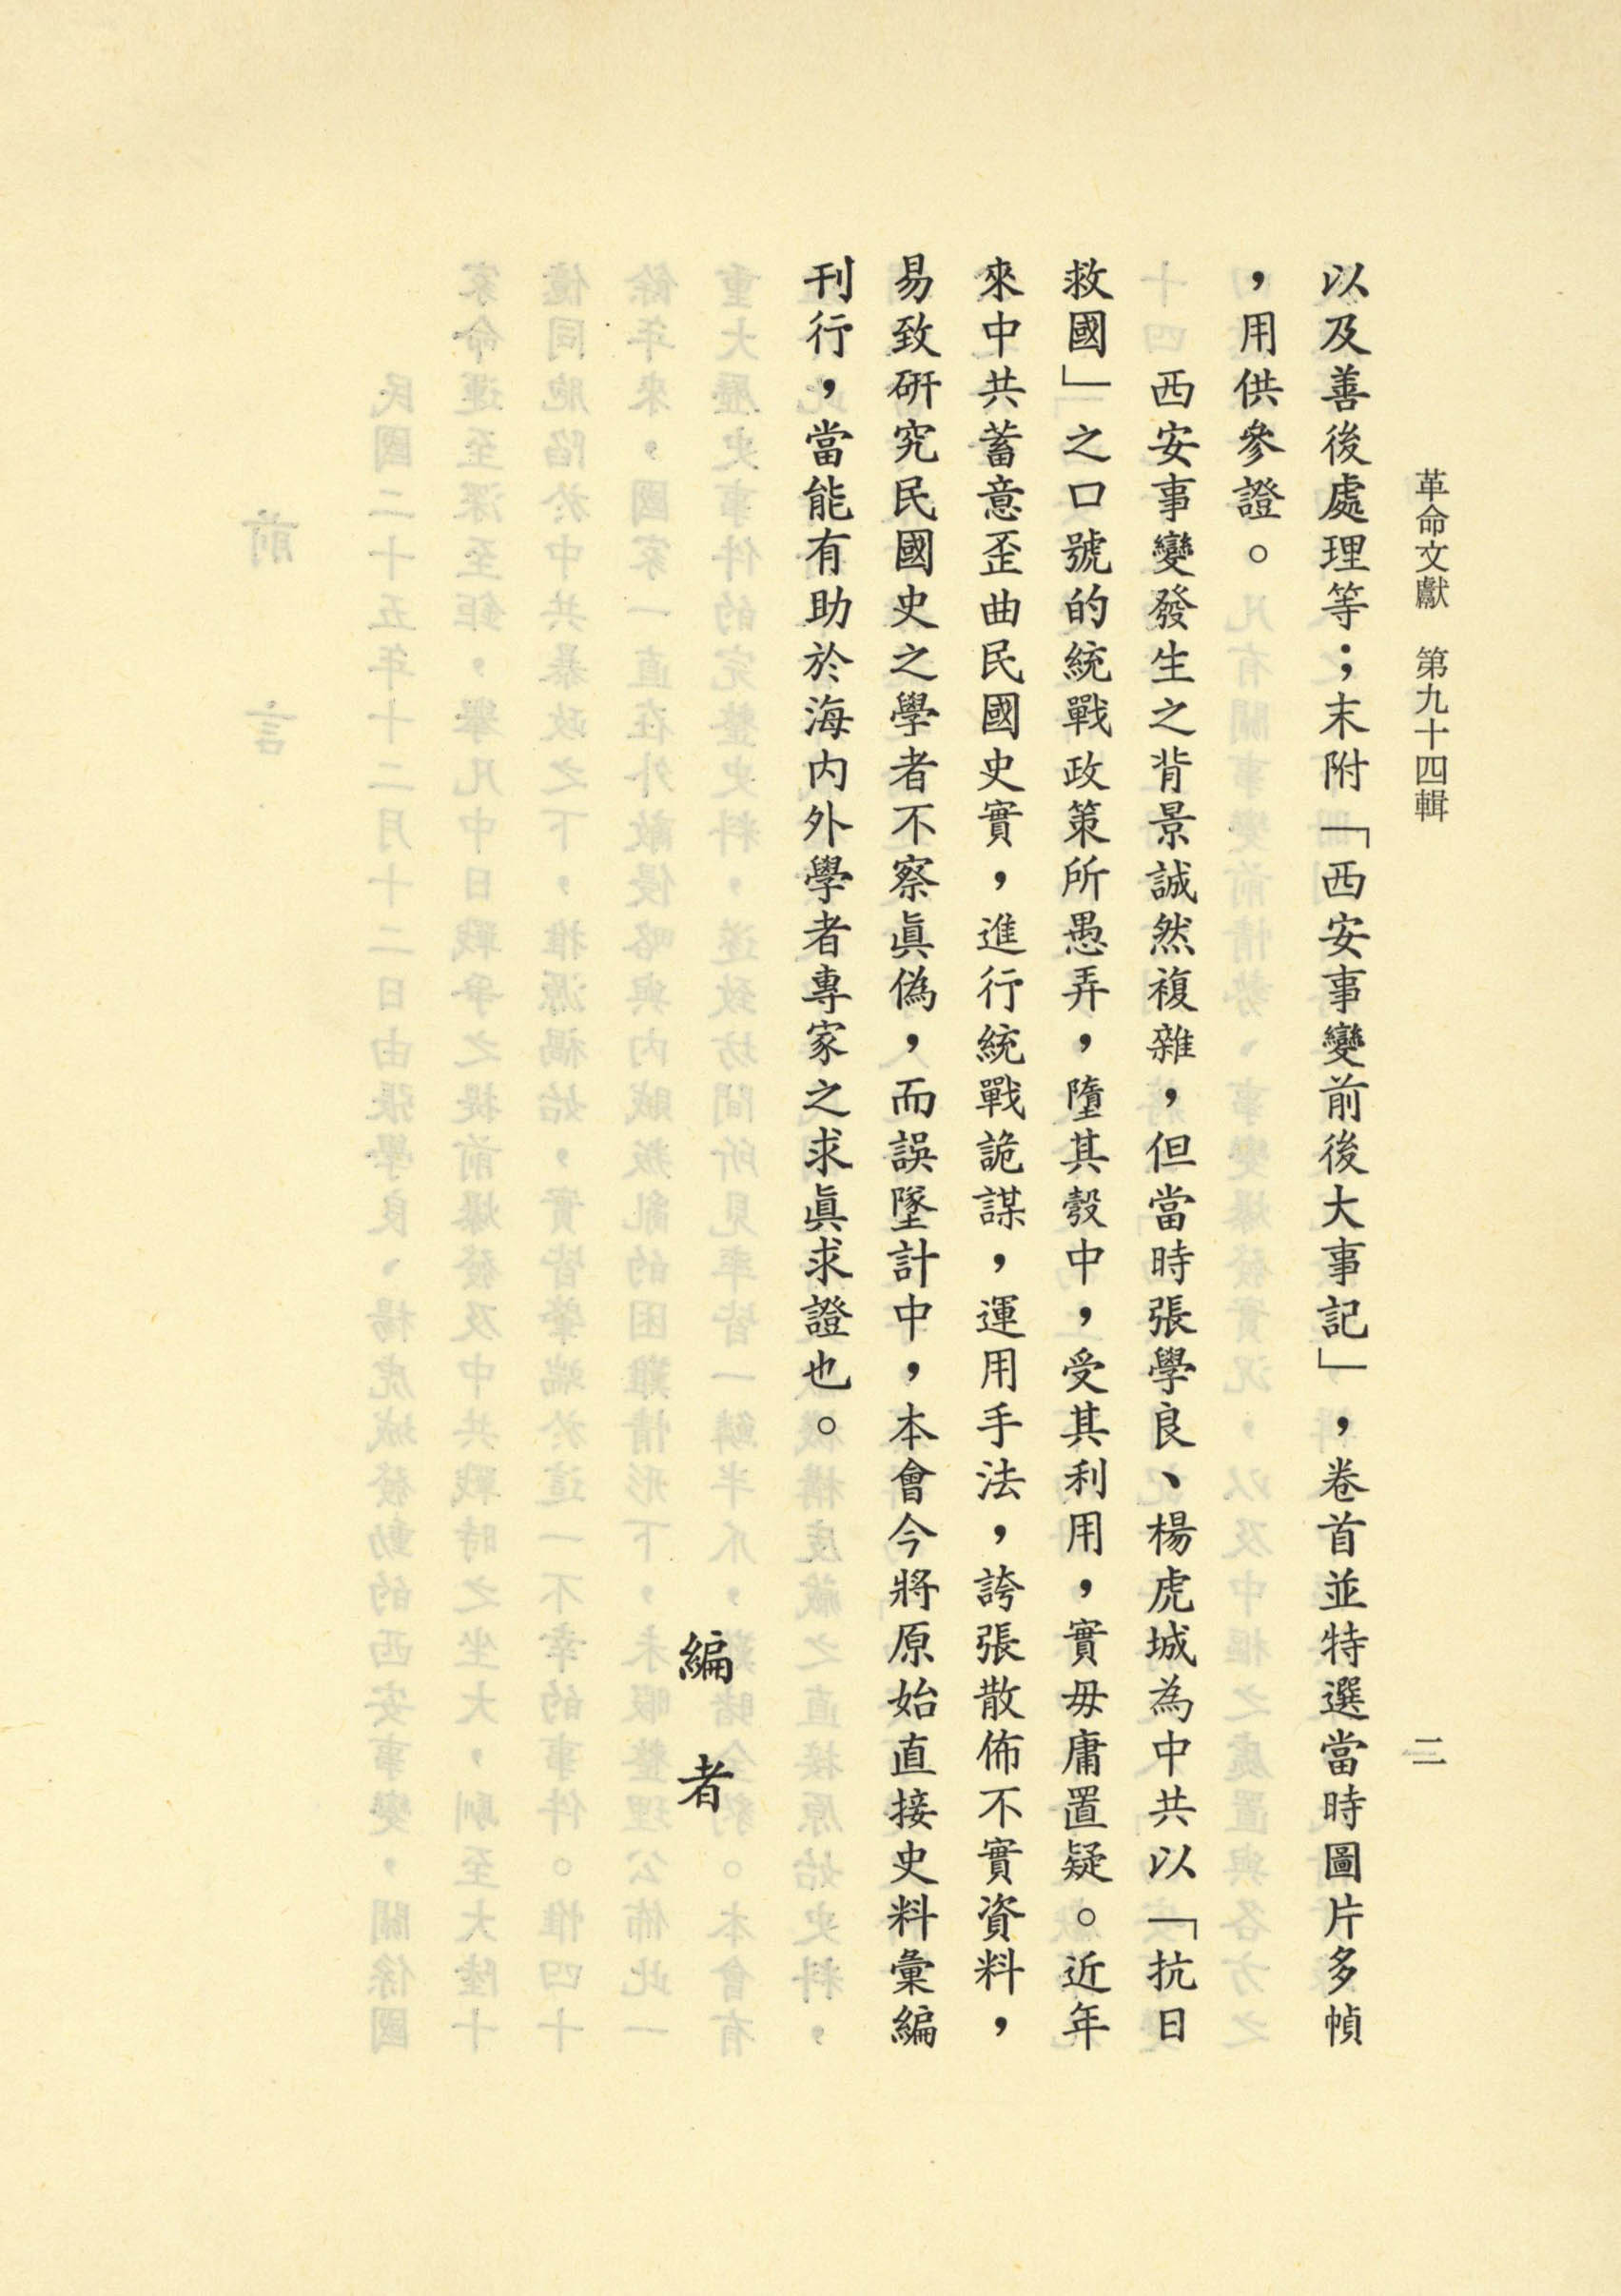 革命文獻　第九十四輯
二
以及善後處理等；末附「西安事變前後大事記」，卷首並特選當時圖片多幀
，用供參證。
西安事變發生之背景誠然複雜，但當時張學良、楊虎城為中共以「抗日
救國」之口號的統戰政策所愚弄，墮其彀中，受其利用，實毋庸置疑。近年
來中共蓄意歪曲民國史實，進行統戰詭謀，運用手法，誇張散佈不實資料，
易致研究民國史之學者不察眞偽，而誤墜計中，本會今將原始直接史料彙編
刊行，當能有助於海內外學者專家之求眞求證也。
編者